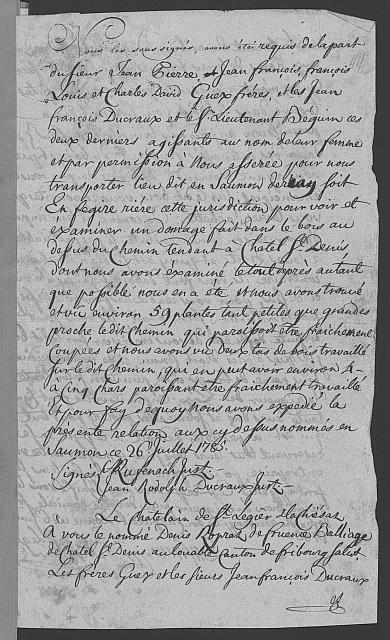 Nous les sous signés, avons étéz requis de la part
du sieur Jean Pierre, et Jean françois, françois
Louis et Charles David Guex frères, et les Jean
françois Ducraux et le Sr. Lieutenant Béguin ces
deux derniers agissants au nom de leur femme
et par permission à Nous asserée pour nous
transporter lieu dit en Saumon derray soit
En fegire rière cette jurisdiction pour voir et
examiner un domage fait dans le bois au
dessus du Chemin Tendant à Chatel St. Denis
dont nous avons éxaminé le tout après autant
que possible nous en a été et nous avons trouvé
et vû environ 59 plantes tant petites que grandes
proche le dit Chemin qui paroissoit etre fraichement
Coupées et nous avons vu deux tas de bois travaillé
sur le dit Chemin, qui en peut avoir environ 4-
à cinq Chars paroissant etre fraichement travaillé
Et pour foy dequoy Nous avons expedié la
présente relation aux cy dessus nommés en
Saumon ce 26e Juillet 1785.
Signés Rufenach Just.
Jean Rodolph Ducraux Just.
Le Chatelain de St. Legier et la Chiésaz
A vous le nommé Denis Popraz de fruence Balliage
de Chatel St. Denis au louable Canton de fribourg Salut,
Les frères Guex et les sieurs Jean françois Ducraux